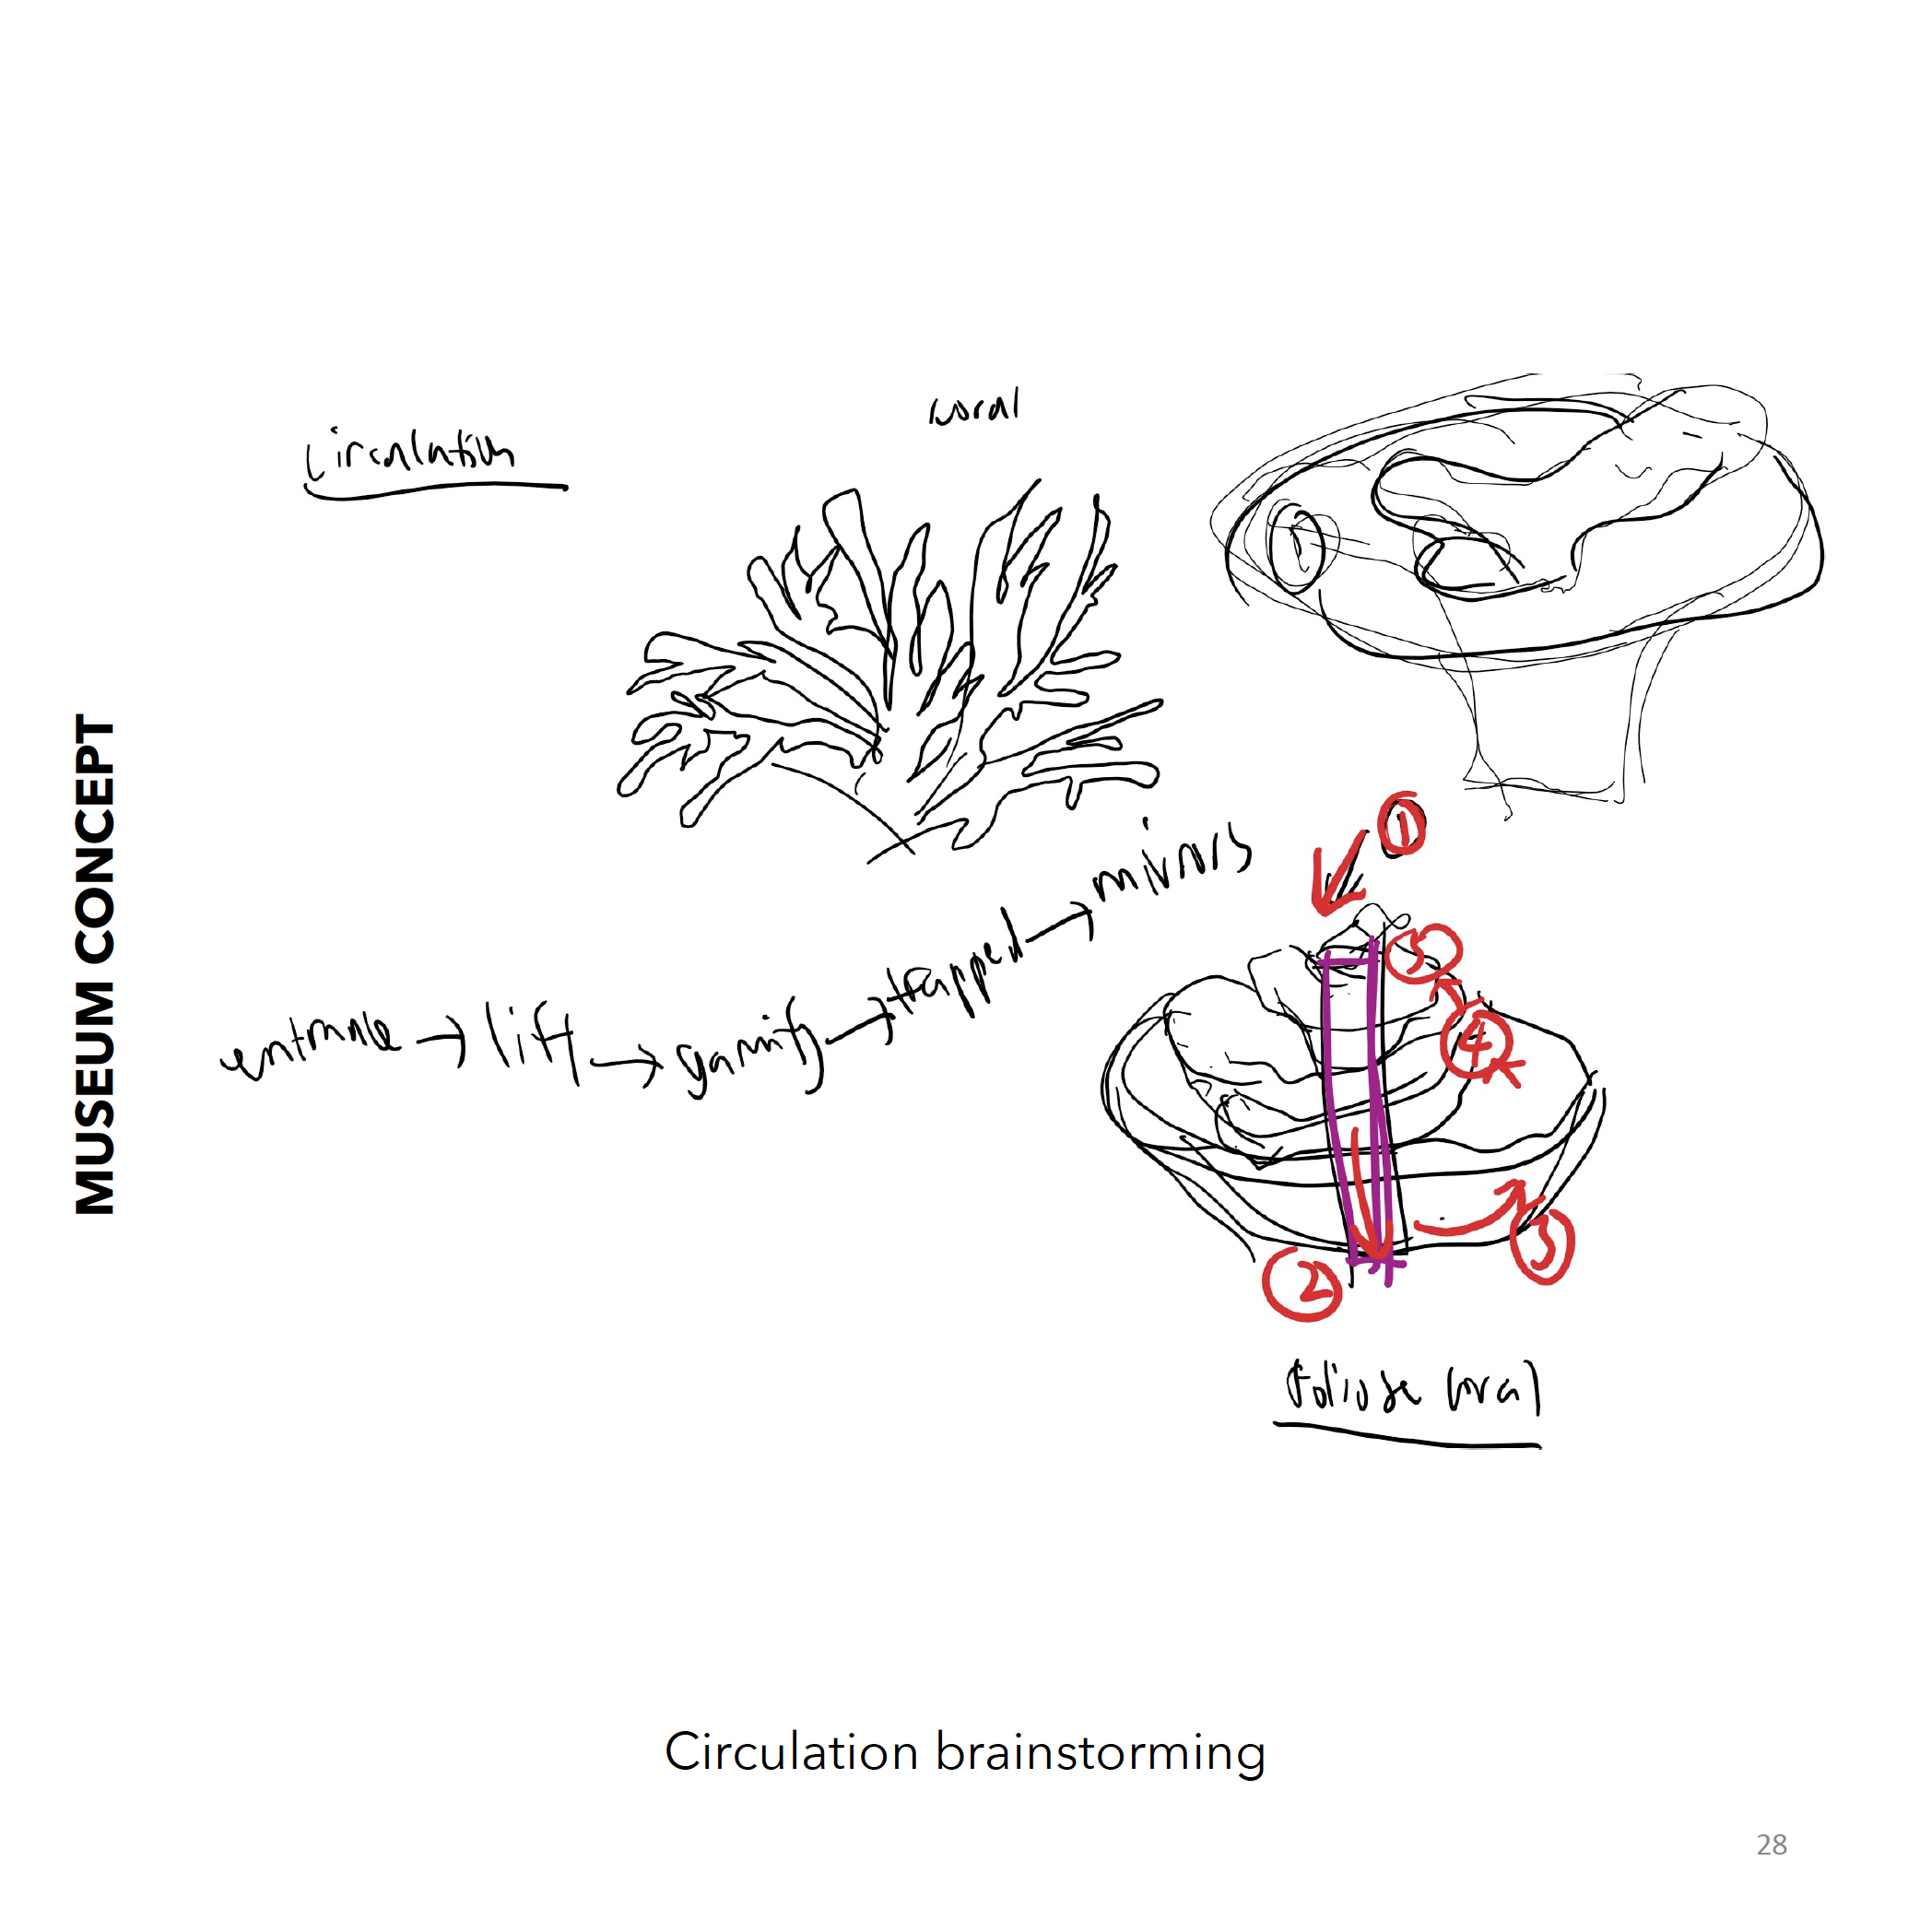 MUSEUM CONCEPT
circulation
coral
entrance → lift → gamify → trapped →
1
5
4
3
2
foliose coral
Circulation brainstorming
28